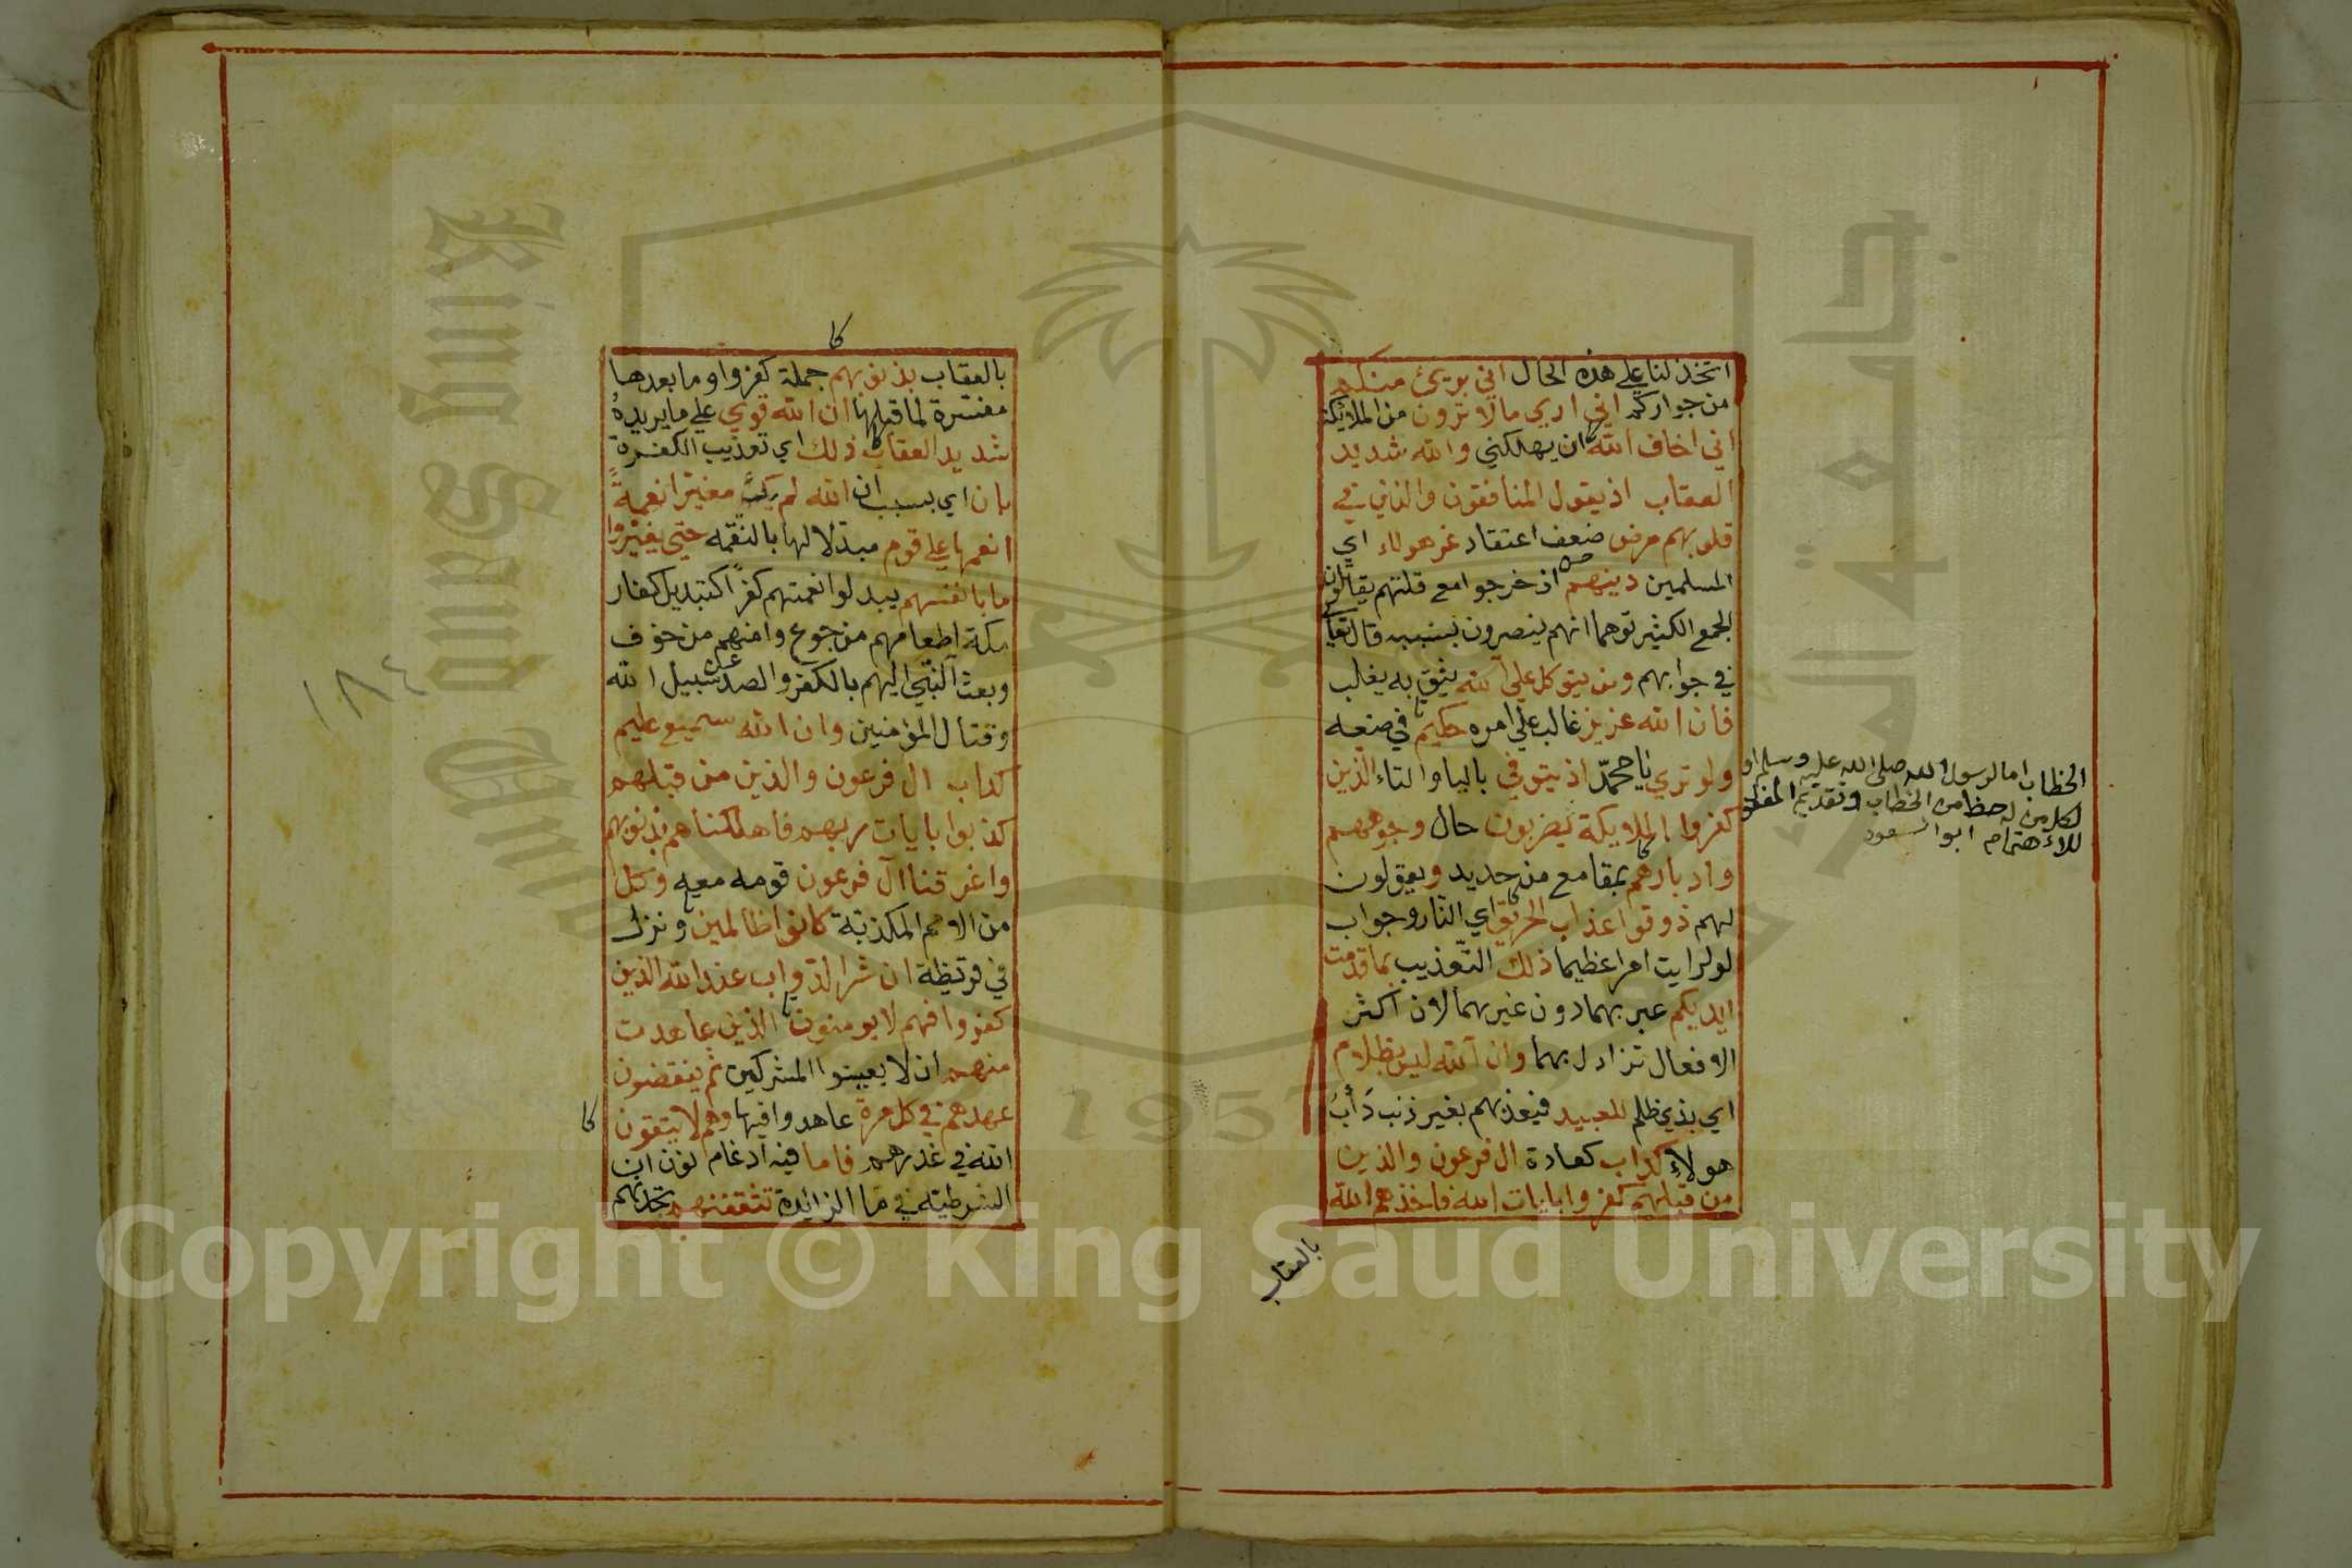 اتخذلنا علي هذه الحال اني بريئ منكم
من جواركم اني اري مالا ترون من الملائكة
اني اخاف الله ان يهلكني والله شديد
العقاب اذيقول المنافقون والذين في
قلوبهم مرض ضعف اعتقاد غر هولاء اي
المسلمين دينهم اذ خرجوا مع قلتهم يقاتلون
الجمع الكثير توهما انهم ينصرون بسببه قال تعا
في جوابهم ومن يتوكل علي الله يثق به يغلب
فان الله عزيز غالب علي امره حكيم في صنعه
ولو تري يا محمد اذ يتوفي بالياوالتاء الذين
كفروا الملايكة يضربون حال وجوههم
وادبارهم بمقامع من حديد ويقولون
لهم ذوقوا عذاب الحريق اي النار وجواب
لو لرايت امرا عظيما ذلك التعذيب بما قدمت
ايديكم عبر بهما دون غيرهما لان اكثر
الافعال تزاول بهما وان الله ليس بظلام
اي بذي ظلم للعبيد فيعذبهم بغير ذنب دَأْبُ
هولاء كداب كعادة ال فرعون والذين
من قبلهم كفروا بايات الله فاخذهم الله
بالعقاب
الخطاب اما لرسول الله صلى الله عليه وسلم او
لكل من له حظ من الخطاب وتقديم المفعول
للاهتمام ابو السعود
كا
بالعقاب بذنوبهم جملة كفروا وما بعدها
مفسرة لما قبلها ان الله قوي علي ما يريده
شديد العقاب ذلك اي تعذيب الكفرة
بان اي بسبب ان الله لم يك مغيرا نعمةً
انعمها علي قوم مبدلا لها بالنقمه حتي يغيروا
ما بانفسهم يبدلوا نعمتهم كفرًا كتبديل كفار
مكة اطعامهم من جوع وامنهم من خوف
وبعث النبي اليهم بالكفر والصد عن سبيل الله
وقتال المؤمنين وان الله سميع عليم
كداب ال فرعون والذين من قبلهم
كذبوا بايات ربهم فاهلكناهم بذنوبهم
واغرقنا آل فرعون قومه معه وكل
من الامم المكذبة كانوا ظالمين ونزل
في قريظة ان شر الدواب عند الله الذين
كفروا فهم لا يومنون الذين عاهدت
منهم ان لا يعينوا المشركين ثم ينقضون
عهدهم في كل مرة عاهدوا فيها وهم لا يتقون
كا
الله في غدرهم فاما فيه ادغام نون ان
الشرطية في ما الزائدة تثقفنهم تجدنهم
١٨٤
King Saud University
جامعة الملك سعود
1957
Copyright © King Saud University